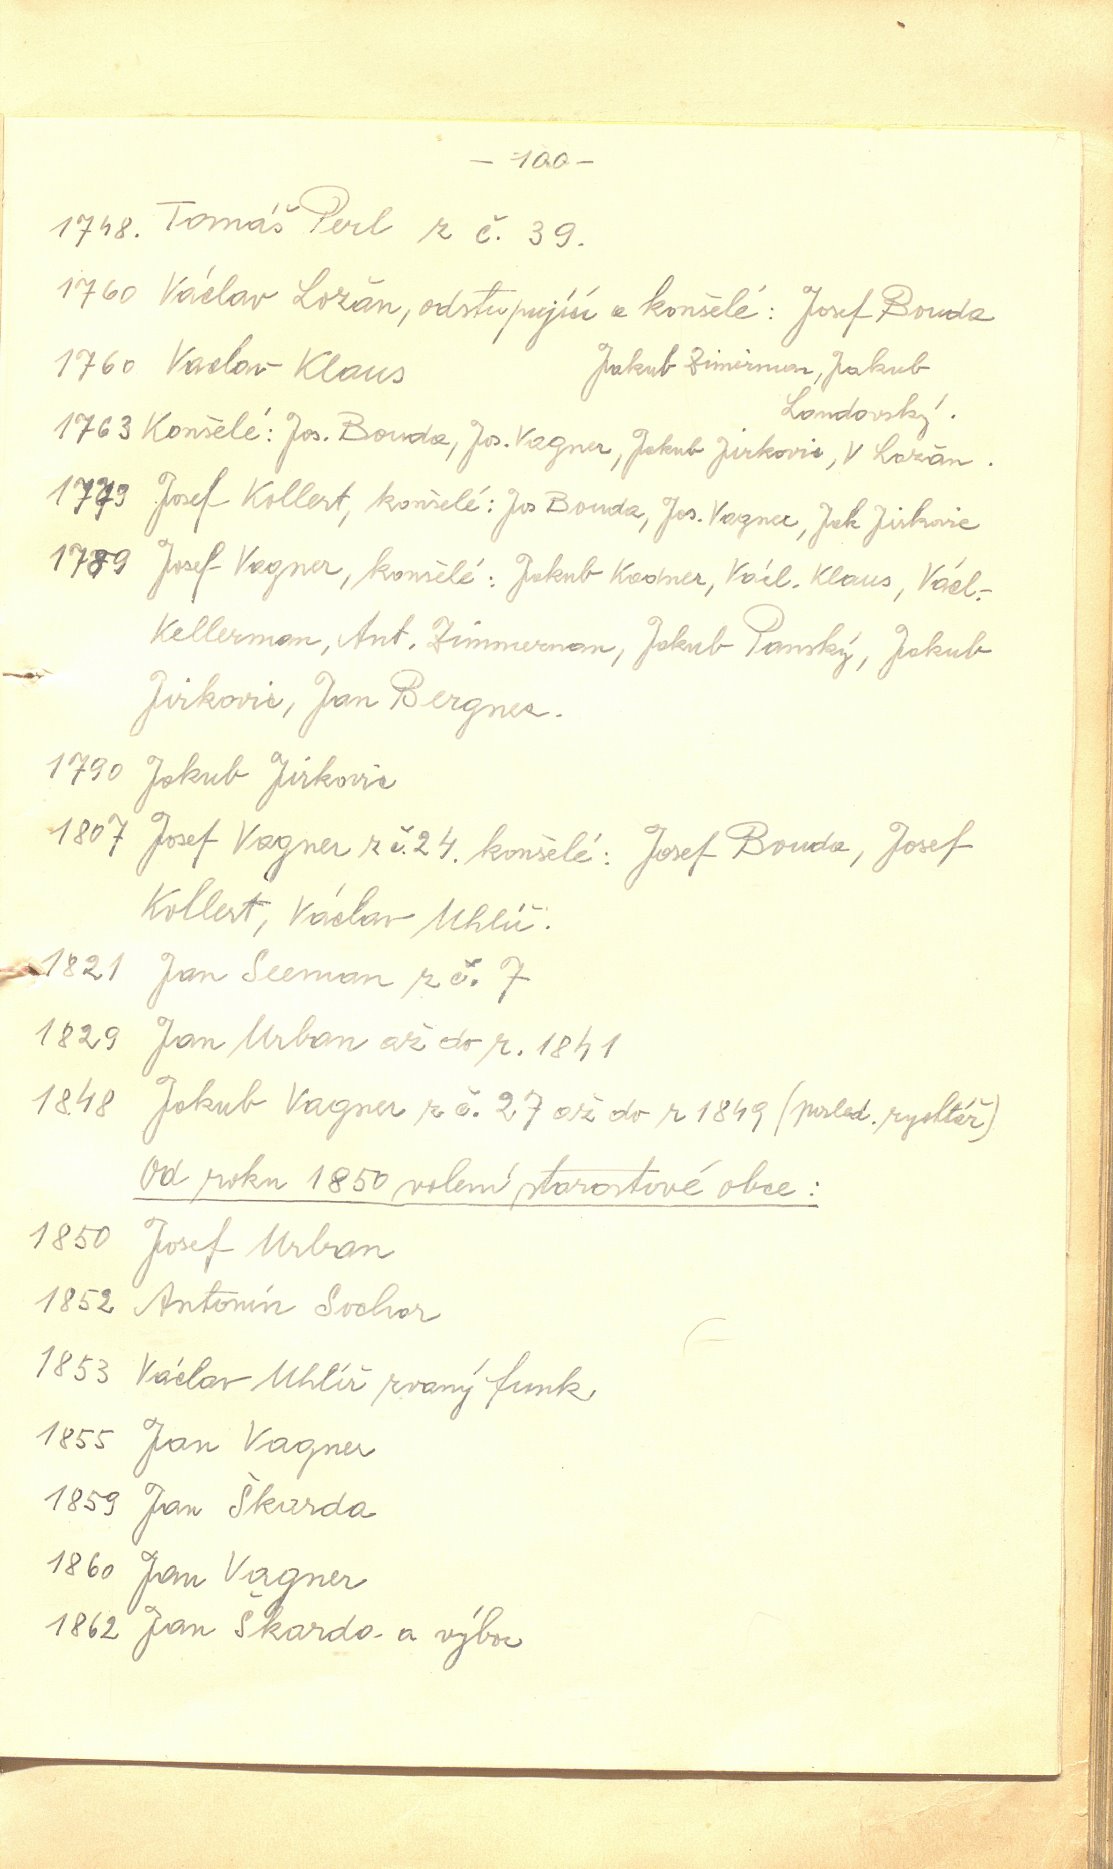 – 100 –
1748. Tomáš Perl z č. 39.
1760 Václav Lozán, odstupující a konšelé: Josef Bouda
1760 Vaclav Klaus Jakub Zimirman, Jakub
Landovský.
1763 Konšelé: Jos. Bouda, Jos. Vagner, Jakub Jirkovic, V Lozán.
1779 Josef Kollert, konšelé: Jos Bouda, Jos. Vagner, Jak Jirkovic
1789 Josef Vagner, konšelé: Jakub Kadner, Václ. Klaus, Václ.
Kellerman, Ant. Zimmerman, Jakub Panský, Jakub
Jirkovic, Jan Bergner.
1790 Jakub Jirkovic
1807 Josef Vagner z č. 24. konšelé: Josef Bouda, Josef
Kollert, Václav Uhlíř.
1821 Jan Seeman z č. 7
1829 Jan Urban až do r. 1841
1848 Jakub Vagner z č. 27 až do r 1849 (posled. rychtář)
Od roku 1850 volení starostové obce:
1850 Josef Urban
1852 Antonín Sochor
1853 Václav Uhlíř zvaný funk
1855 Jan Vagner
1859 Jan Škarda
1860 Jan Vagner
1862 Jan Škarda a výbor